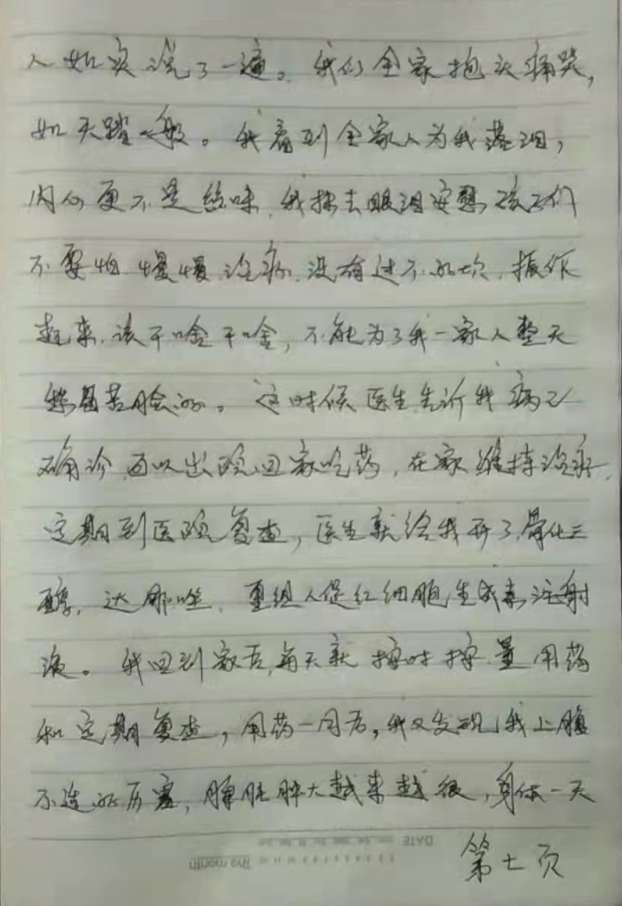 人如实说了一遍。我们全家抱头痛哭，
如天踏一般。我看到全家人为我落泪，
内心更不是滋味，我抹去眼泪安慰孩子们
不要怕，慢慢治疗，没有过不的坎，振作
起来，该干啥干啥，不能为了我一家人整天
愁眉苦脸的。这时候医生告诉我病已
确诊，可以出院回家吃药，在家维持治疗，
定期到医院复查，医生就给我开了骨化三
醇，达那唑，重组人促红细胞生成素注射
液。我回到家后，每天就按时按量用药
和定期复查，用药一月后，我又发现我上腹
不适的厉害，脾脏肿大越来越狠，身体一天
DATE
The month
第七页